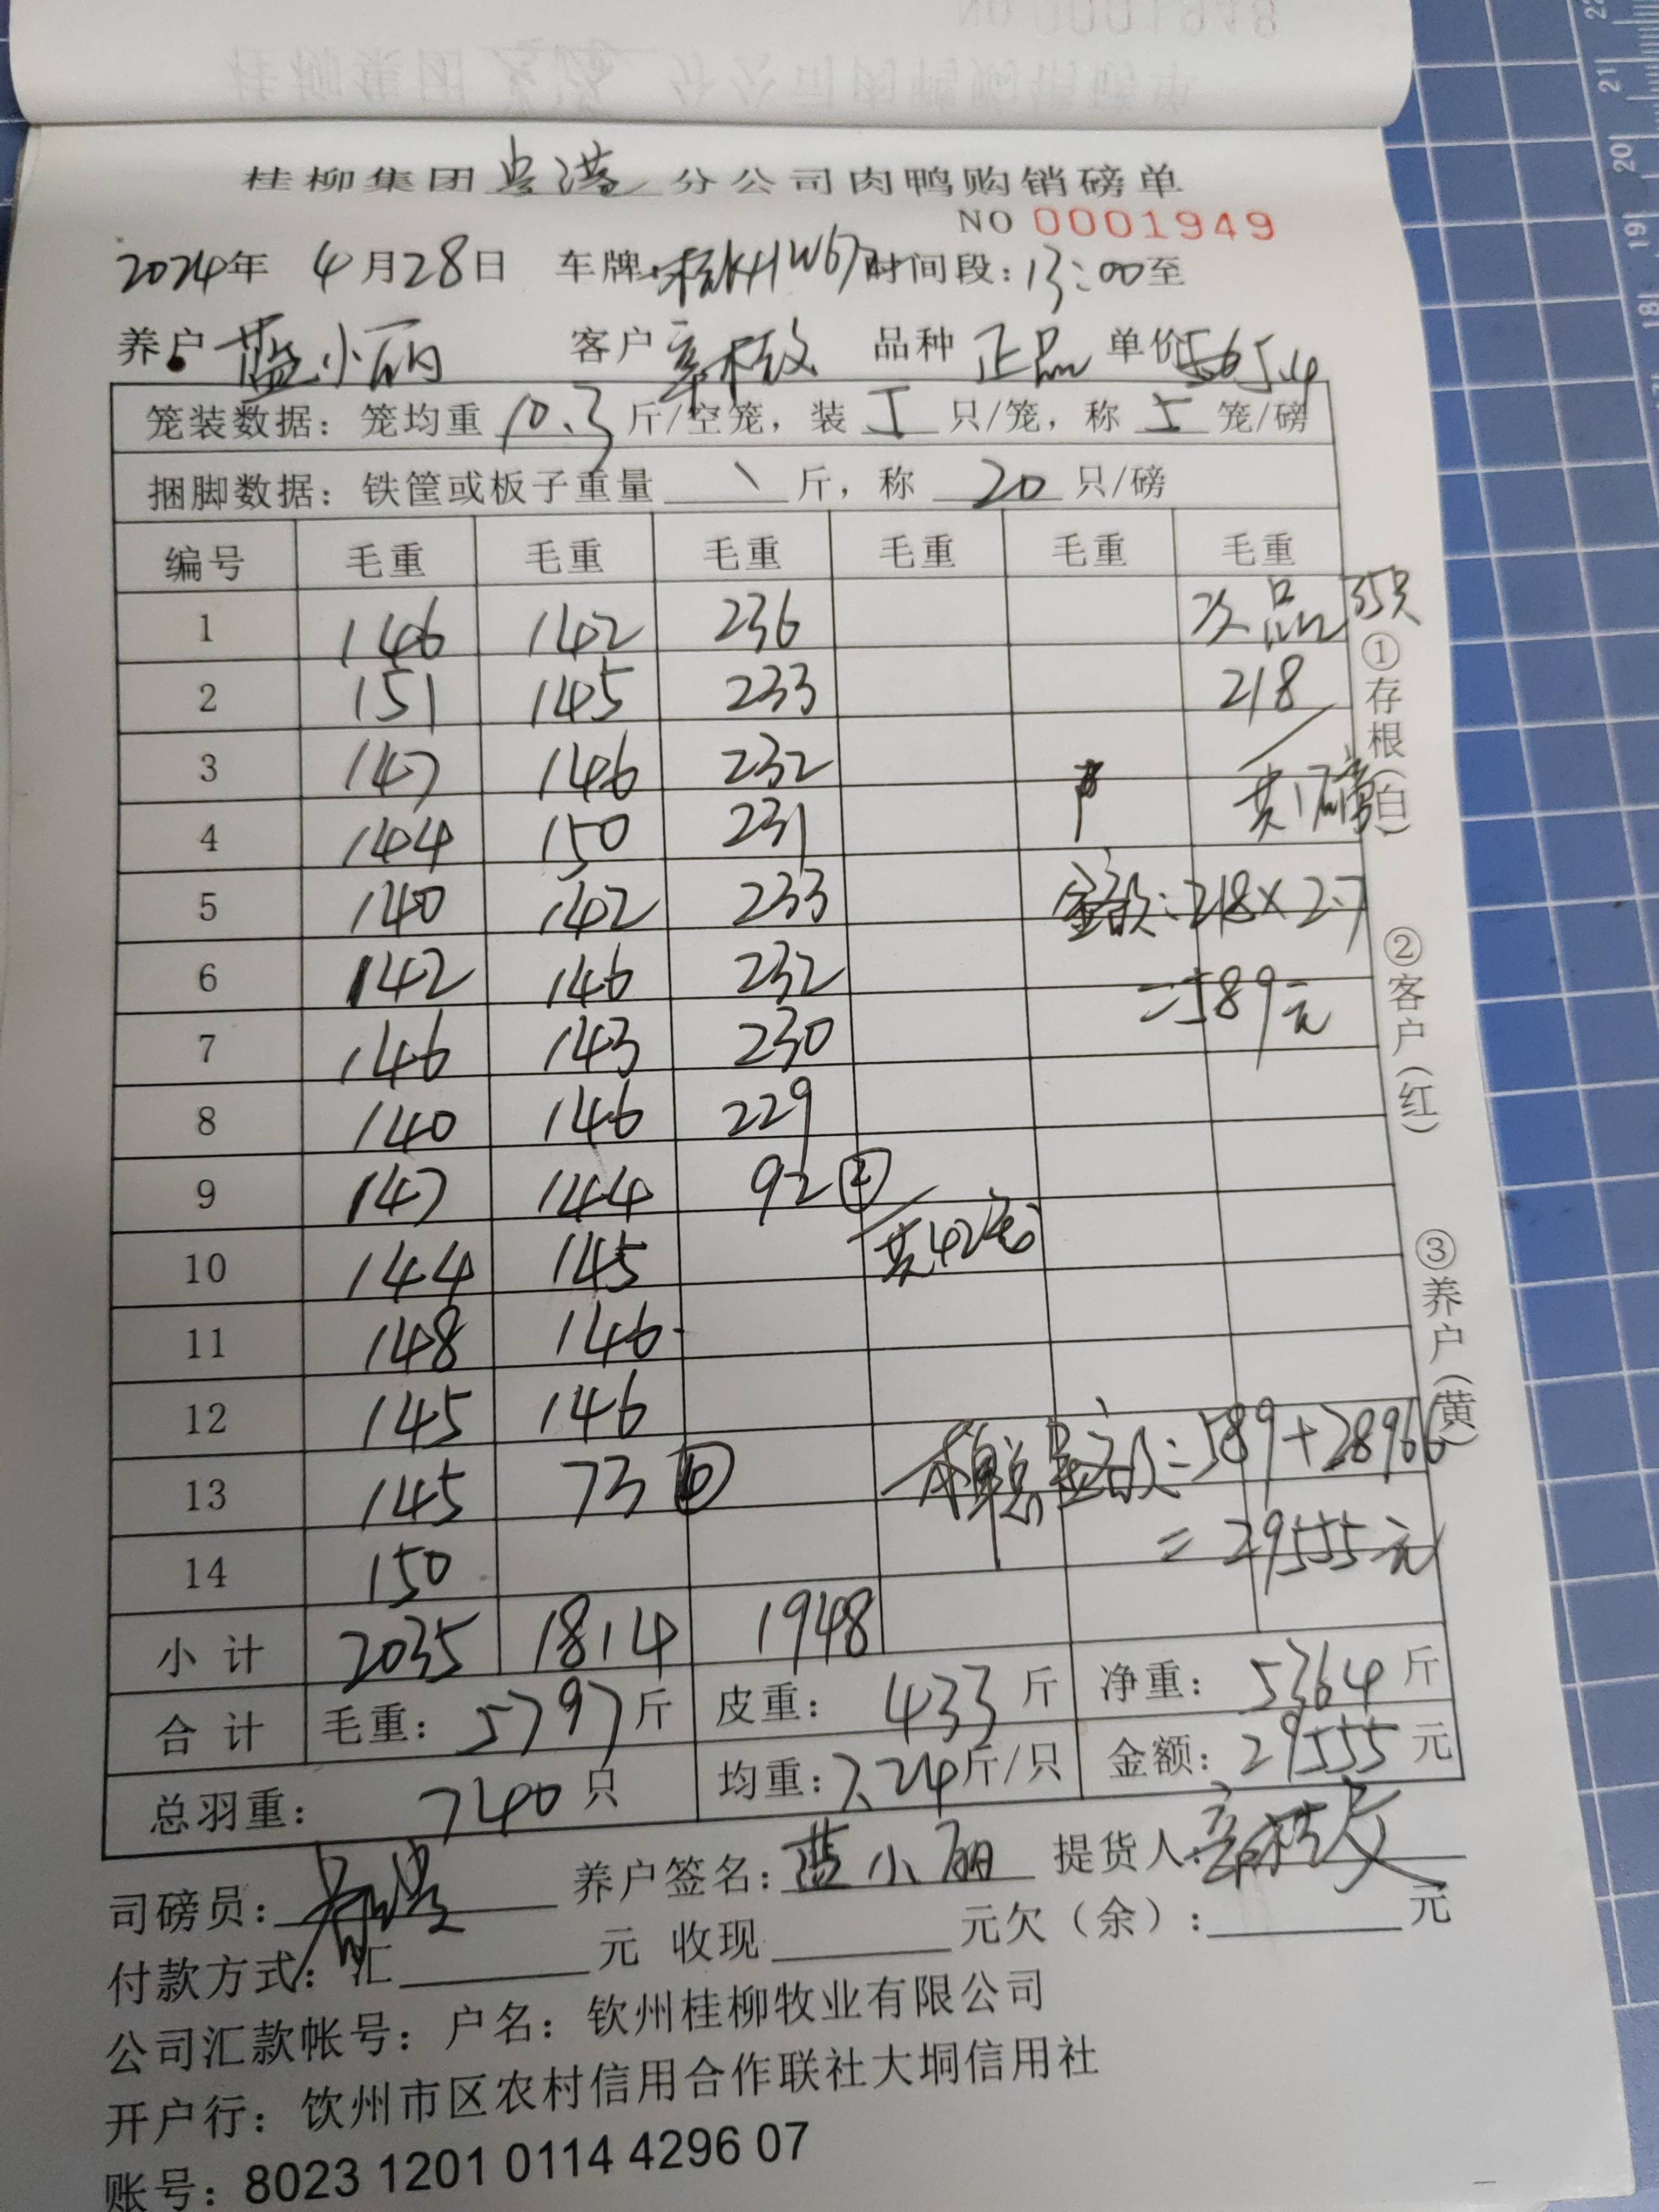 桂柳集团灵港分公司肉鸭购销磅单
NO 0001949
2024年 4月28日 车牌:桂KHW67 时间段:13:00至
养户 蓝小丽 客户 辛桂文 品种 正品 单价 5.4
笼装数据: 笼均重 10.3 斤/空笼, 装 5 只/笼, 称 5 笼/磅
捆脚数据: 铁筐或板子重量 \ 斤, 称 20 只/磅
编号 毛重 毛重 毛重 毛重 毛重 毛重
1 146 142 236 次品 35只
2 151 145 233 218
3 147 146 232
4 144 150 231 共1磅
5 140 142 233 金额:218×2.7
6 142 146 232 =589元
7 146 143 230
8 140 146 229
9 147 144 92②
10 144 145 共42笼
11 148 146
12 145 146
13 145 73⑩ 本单总金额:589+28966
14 150 =29555元
小计 2035 1814 1948
合计 毛重: 5797斤 皮重: 433斤 净重: 5364斤
总羽重: 740只 均重:7.24斤/只 金额:29555元
司磅员: 养户签名:蓝小丽 提货人:辛桂文
付款方式: 汇 元 收现 元欠(余): 元
公司汇款帐号: 户名: 钦州桂柳牧业有限公司
开户行: 钦州市区农村信用合作联社大垌信用社
账号: 8023 1201 0114 4296 07
①存根(白)
②客户(红)
③养户(黄)